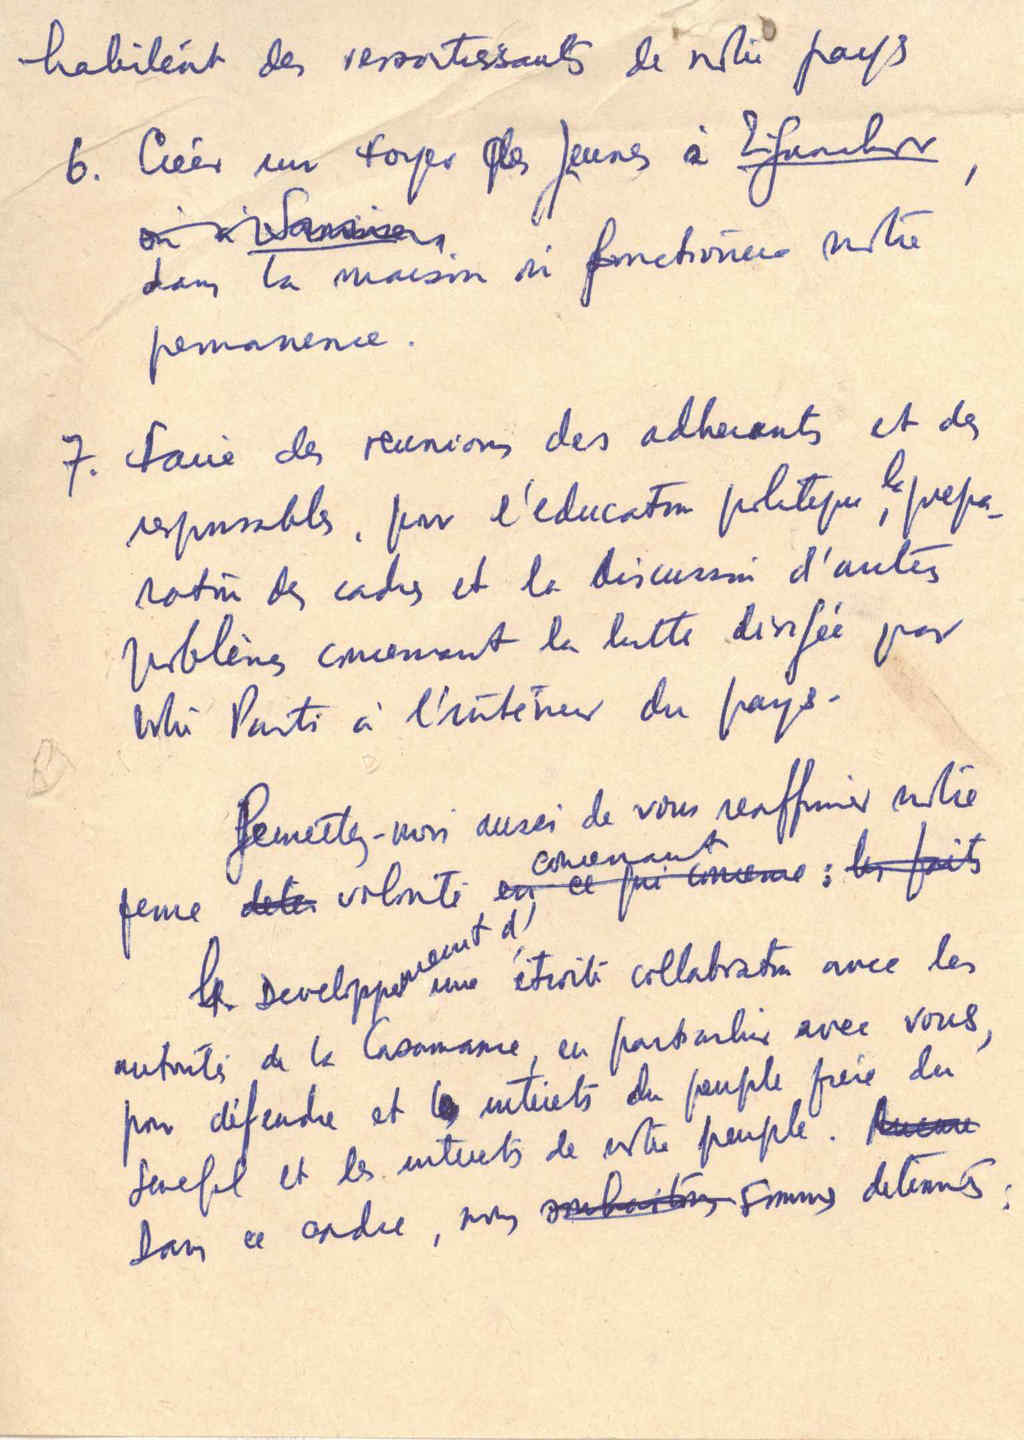 habitent des ressortissants de notre pays
6. Créer un foyer des Jeunes à Ziguinchor,
ou à
dans la maison où fonctionne notre
permanence.
7. Faire des reunions des adherants et des
responsables, pour l'education politique, la prepa-
ration des cadres et la discussion d'autres
problèmes concernant la lutte dirigée par
notre Parti à l'intérieur du pays.
Permettez-moi aussi de vous reaffirmer notre
concernant
ferme deter volonté en ce qui concerne : les faits
le Developpement d'une étroite collaboration avec les
autorités de la Casamance, en particulier avec vous,
pour défendre et les interets du peuple frère du
Senegal et les interets de notre peuple. Aucune
Dans ce cadre, nous souhaitons sommes determinés :